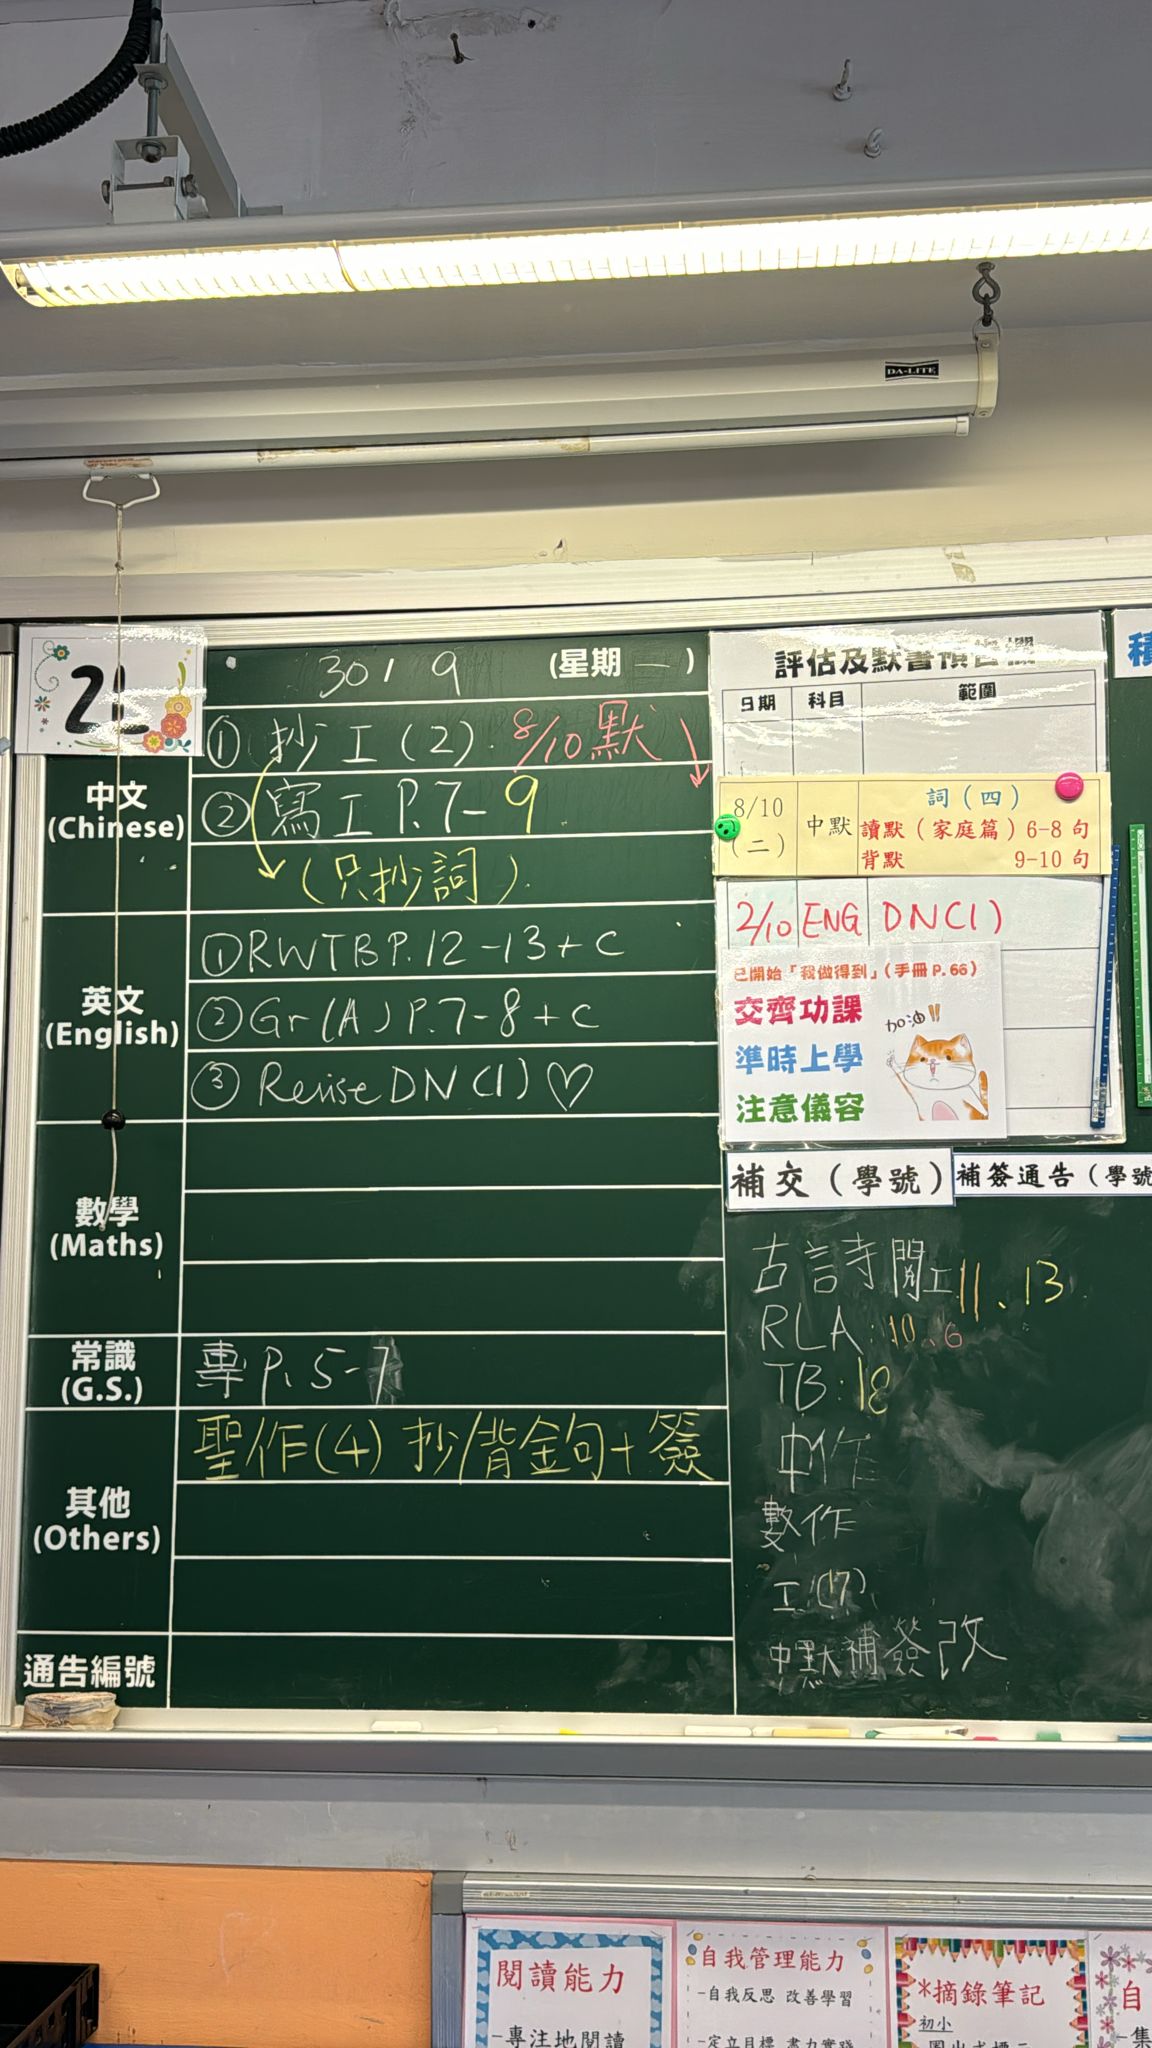 DA-LITE
2L
30/9 (星期一)
評估及默書預告欄
日期 科目 範圍
中文
(Chinese)
① 抄工(2). 8/10 默
② 寫工 P.7-9
(只抄詞).
8/10
(二)
中默
詞(四)
讀默(家庭篇)6-8句
背默 9-10句
2/10 ENG DN(1)
英文
(English)
① RWTB P.12-13+C
② Gr(A) P.7-8+C
③ Revise DN(1)♡
已開始「我做得到」(手冊P.66)
交齊功課
準時上學
注意儀容
加油!!
數學
(Maths)
常識
(G.S.)
專 P.5-7
其他
(Others)
聖作(4) 抄/背金句+簽
通告編號
補交(學號)
補簽通告(學號
古詩閱工 11、13
RLA: 10、6
TB: 18
中作
數作
工(17)
中默補簽改
積
閱讀能力
-專注地閱讀
自我管理能力
-自我反思 改善學習
-定立目標 盡力實踐
*摘錄筆記
初小
自
-集